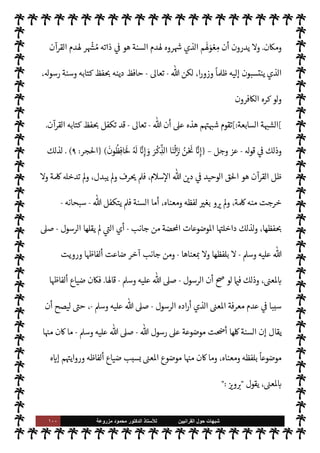 ومكان. ولا يدرون أن مِعْوَلَهُم الذي شهروه لهدم السنة هو في ذاته مُشْهَر لهدم القرآن
الذي ينتسبون إليه ظلماً وزورا، لكن الله - تعالى - حافظ دينه بحفظ كتابه وسنة رسوله،
ولو كره الكافرون
]الشبهة السابعة:[تقوم شبهتهم هذه على أن الله - تعالى - قد تكفل بحفظ كتابه القرآن.
وذلك في قوله - عز وجل - (إِنَّا نَحْنُ نَزَّلْنَا الذِّكْرَ وَإِنَّا لَهُ لَحَافِظُونَ) (الحجر: ٩) . لذلك
ظل القرآن هو الحق الوحيد في دين الله الإسلام، فلم يحرف ولم يبدل، ولم تدخله كلمة ولا
خرجت منه كلمة، ولم يرو بغير لفظه ومعناه، أما السنة فلم يتكفل الله - سبحانه -
بحفظها، ولذلك داخلتها الموضوعات المحضة من جانب - أي التي لم يقلها الرسول - صلى
الله عليه وسلم - لا بلفظها ولا بمعناها - ومن جانب آخر ضاعت ألفاظها ورويت
بالمعنى، وذلك فيما لو صح أن الرسول - صلى الله عليه وسلم - قالها. فكان ضياع ألفاظها
سببا في عدم معرفة المعنى الذي أراده الرسول - صلى الله عليه وسلم -، حتى ليصح أن
يقال إن السنة كلها أضحت موضوعة على رسول الله - صلى الله عليه وسلم - ما كان منها
موضوعاً بلفظه ومعناه، وما كان منها موضوع المعنى بسبب ضياع ألفاظه وروايتهم إياه
بالمعنى، يقول "برويز ":
شبهات حول القرانيين للأستاذ الدكتور محمود مزروعة ١٠٠